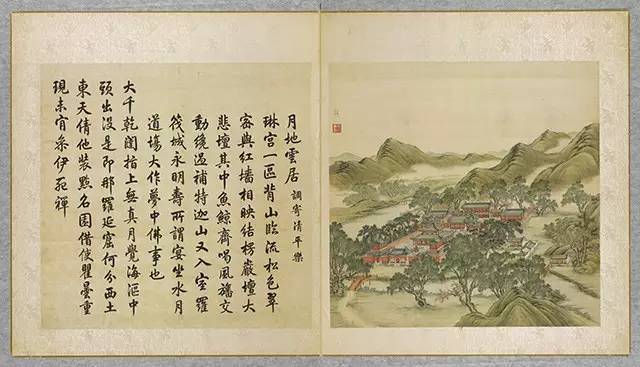 月地雲居 調寄清平樂
琳宫一區背山臨流松色翠
密與紅墻相映結楞嚴壇大
悲壇其中魚鯨齊喝風旛交
動纔過補特迦山又入室羅
筏城永明壽所謂宴坐水月
道場大作夢中佛事也
大千乾闥指上無真月覺海漚中
頭出没是即那羅延窟何分西土
東天倩他裝點名園借使瞿曇重
現未肯參伊死禪